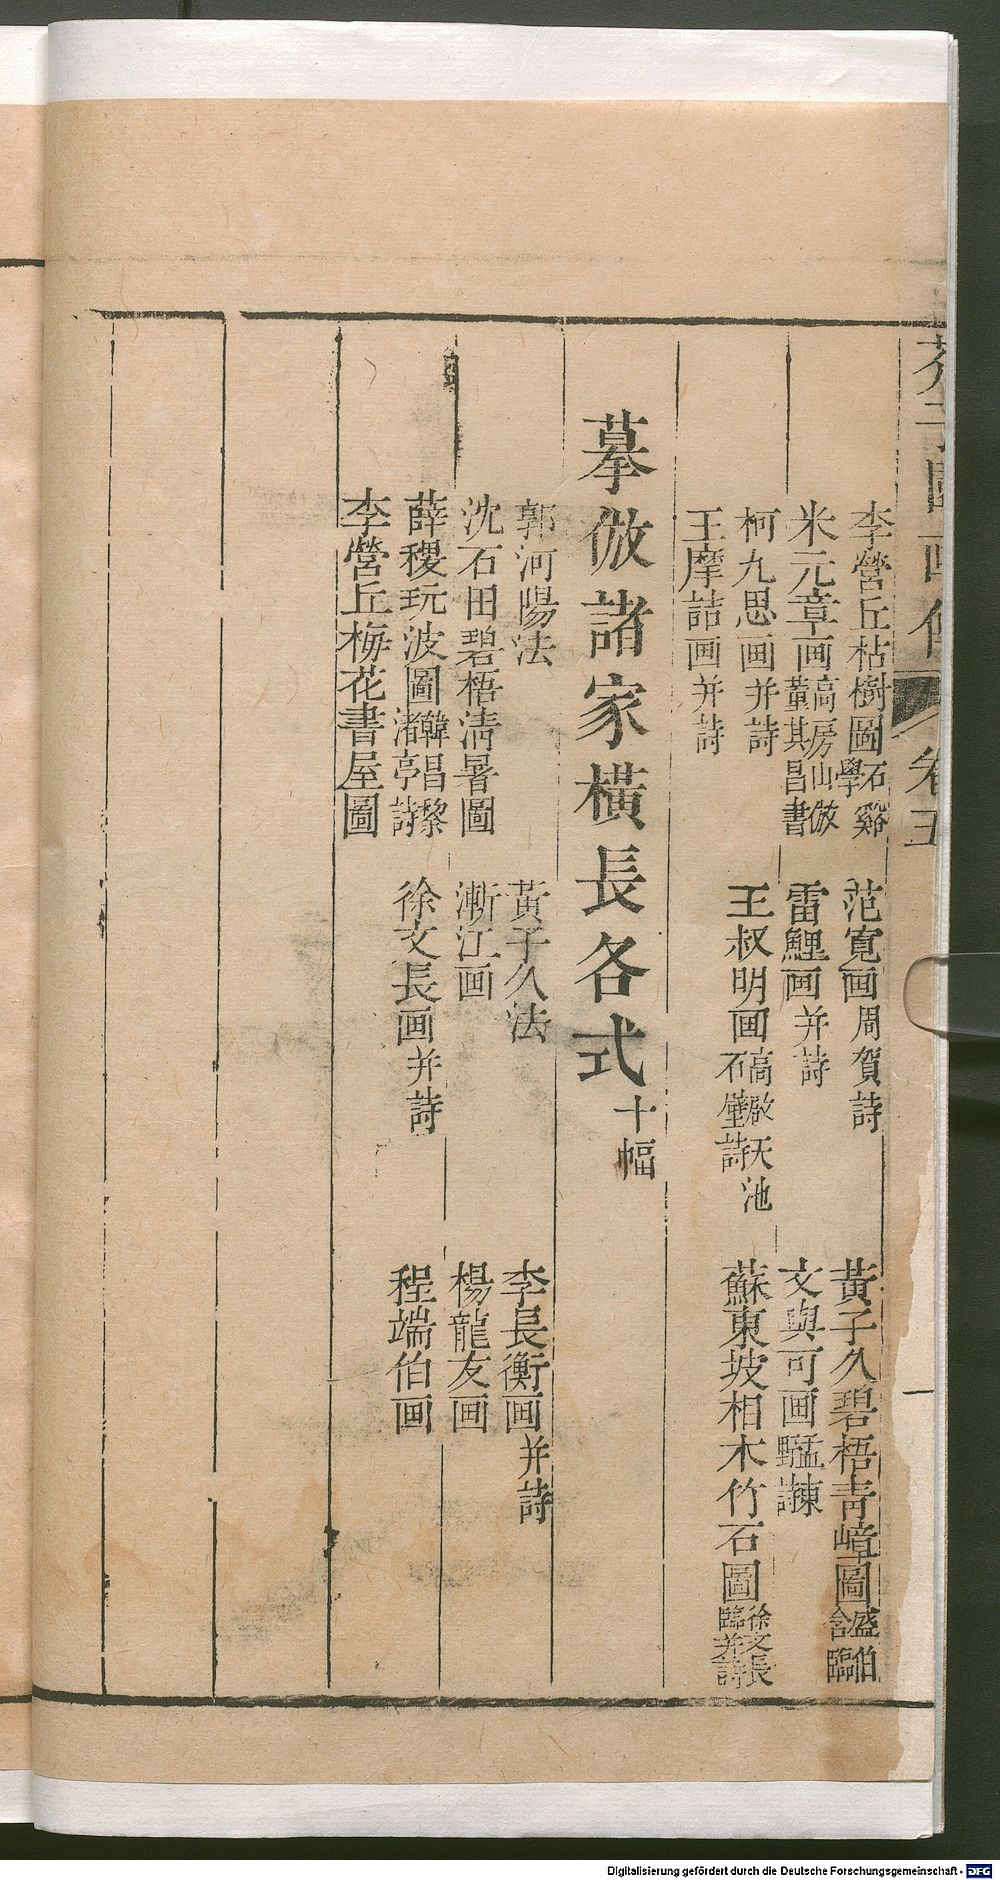 李營丘枯樹圖 石谿學
范寛画 周賀詩
黃子久碧梧青嶂圖 盛伯含臨
米元章画 高房山倣 董其昌書
雷鯉画并詩
文與可画 孟東野詩
柯九思画并詩
王叔明画 高啟天池石壁詩
蘇東坡相木竹石圖 徐文長臨并詩
王摩詰画并詩
摹倣諸家橫長各式 十幅
郭河陽法
黃子久法
李長衡画并詩
沈石田碧梧清暑圖
漸江画
楊龍友画
薛稷玩波圖 韓昌黎渚亭詩
徐文長画并詩
程端伯画
李營丘梅花書屋圖
卷五
一
Digitalisierung gefördert durch die Deutsche Forschungsgemeinschaft - DFG